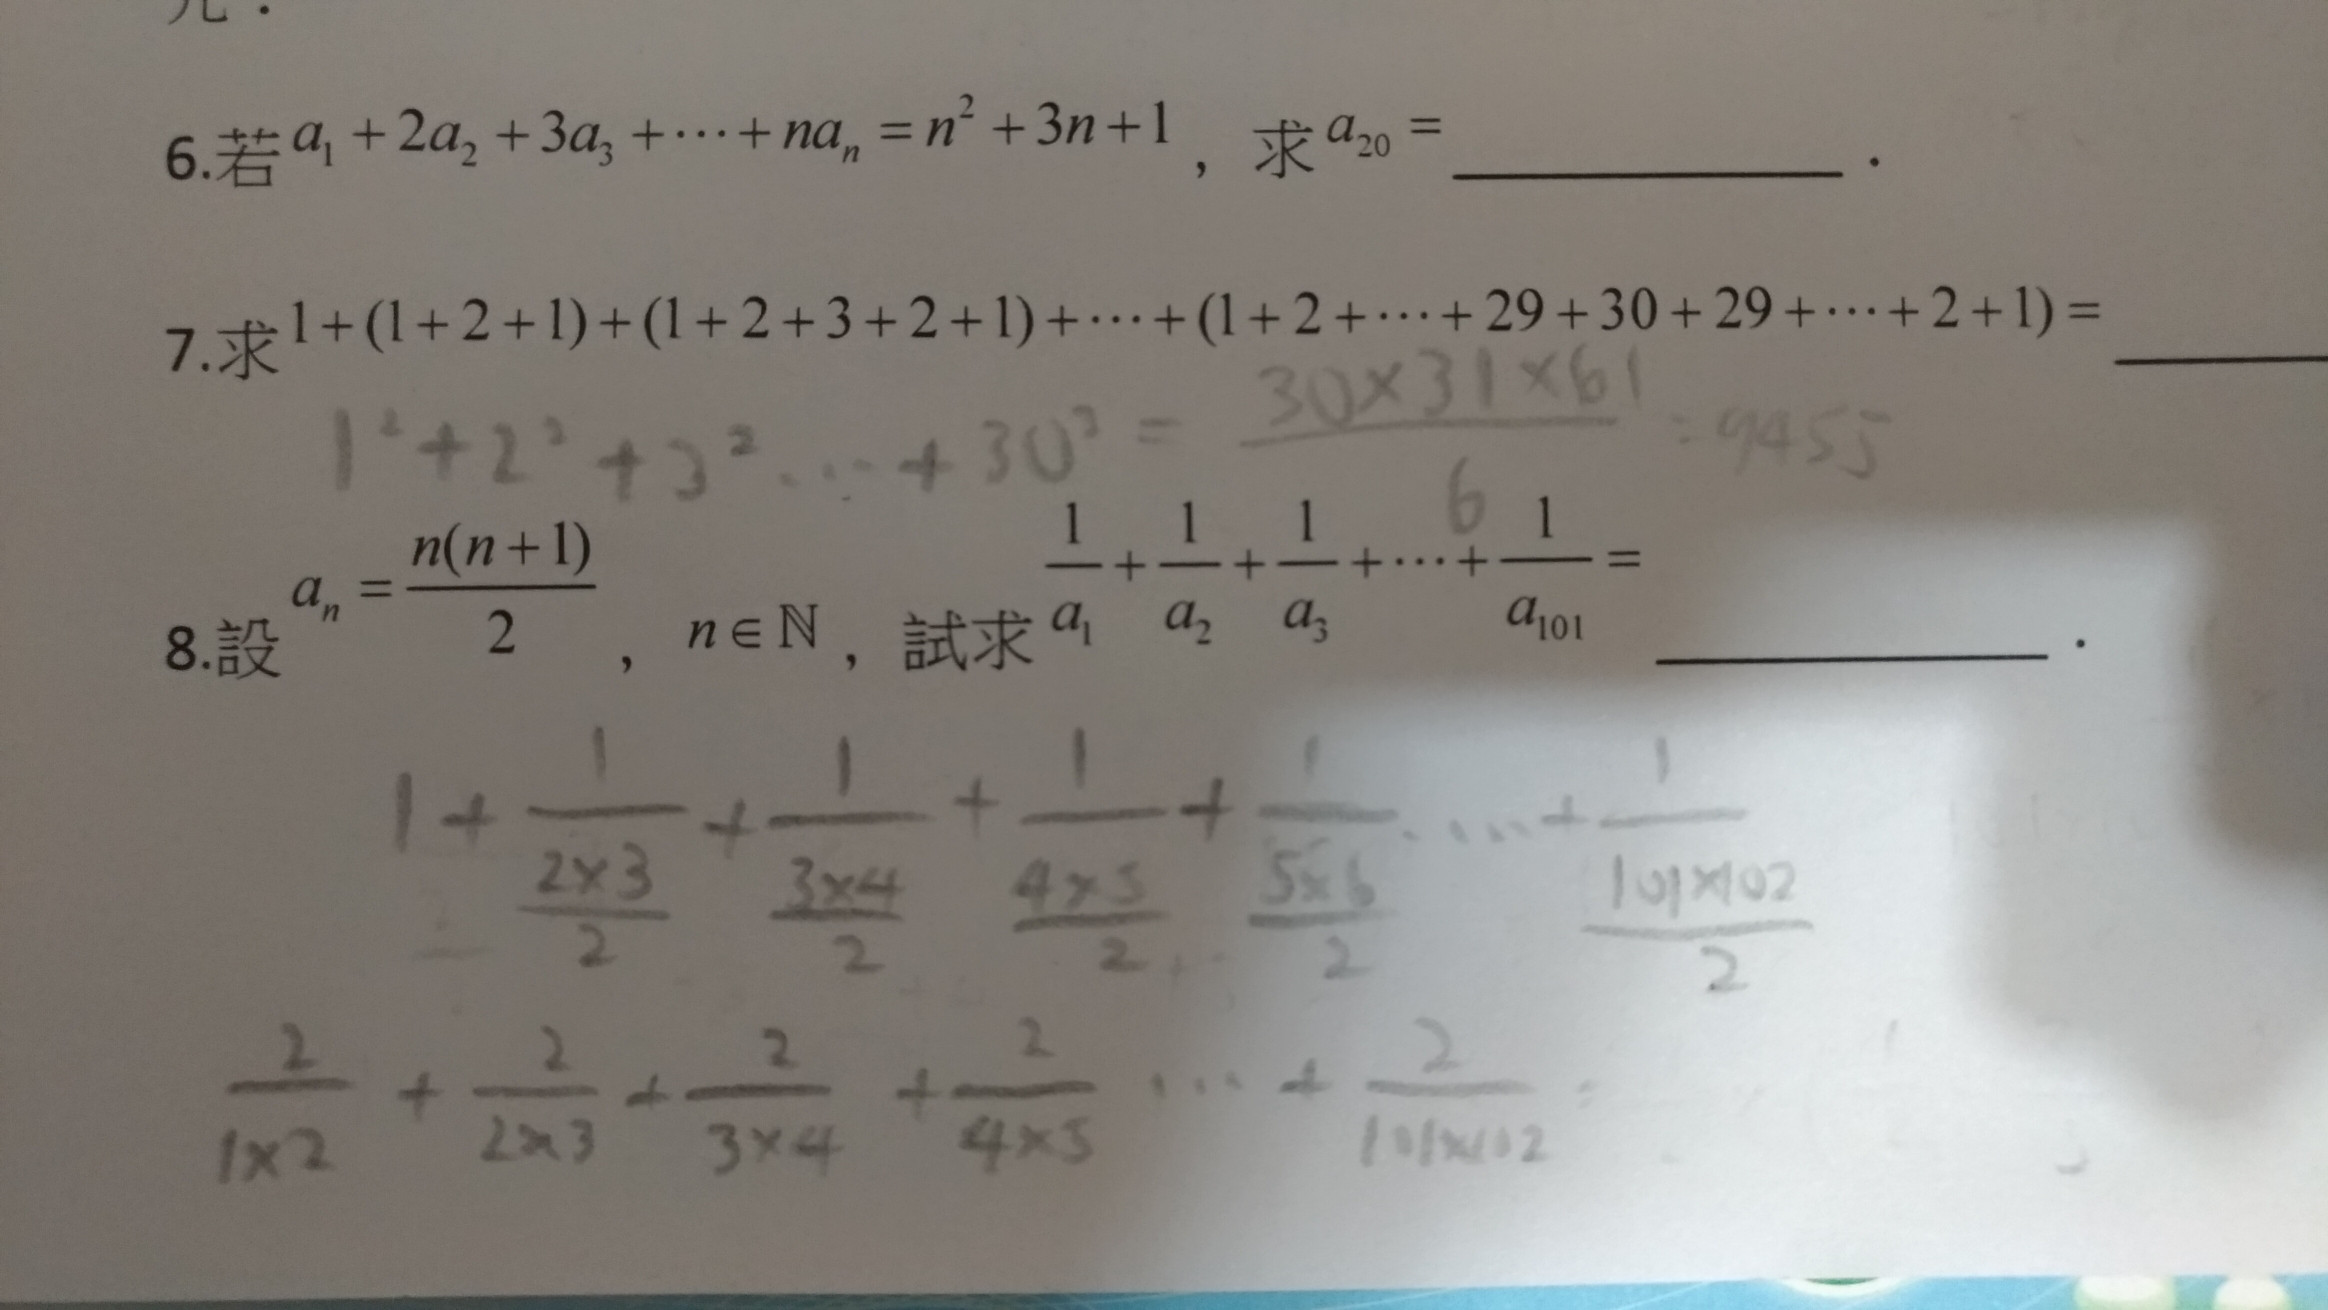 6.若 a₁ + 2a₂ + 3a₃ + ⋯ + naₙ = n² + 3n + 1 , 求 a₂₀ = ________ .
7.求 1 + (1 + 2 + 1) + (1 + 2 + 3 + 2 + 1) + ⋯ + (1 + 2 + ⋯ + 29 + 30 + 29 + ⋯ + 2 + 1) = ________
1² + 2² + 3² ⋯ + 30² = (30×31×61)/6 = 9455
8.設 aₙ = n(n+1)/2 , n ∈ ℕ , 試求 1/a₁ + 1/a₂ + 1/a₃ + ⋯ + 1/a₁₀₁ = ________ .
1 + 1/((2×3)/2) + 1/((3×4)/2) + 1/((4×5)/2) + 1/((5×6)/2) ⋯ + 1/((101×102)/2)
2/(1×2) + 2/(2×3) + 2/(3×4) + 2/(4×5) ⋯ + 2/(101×102) =